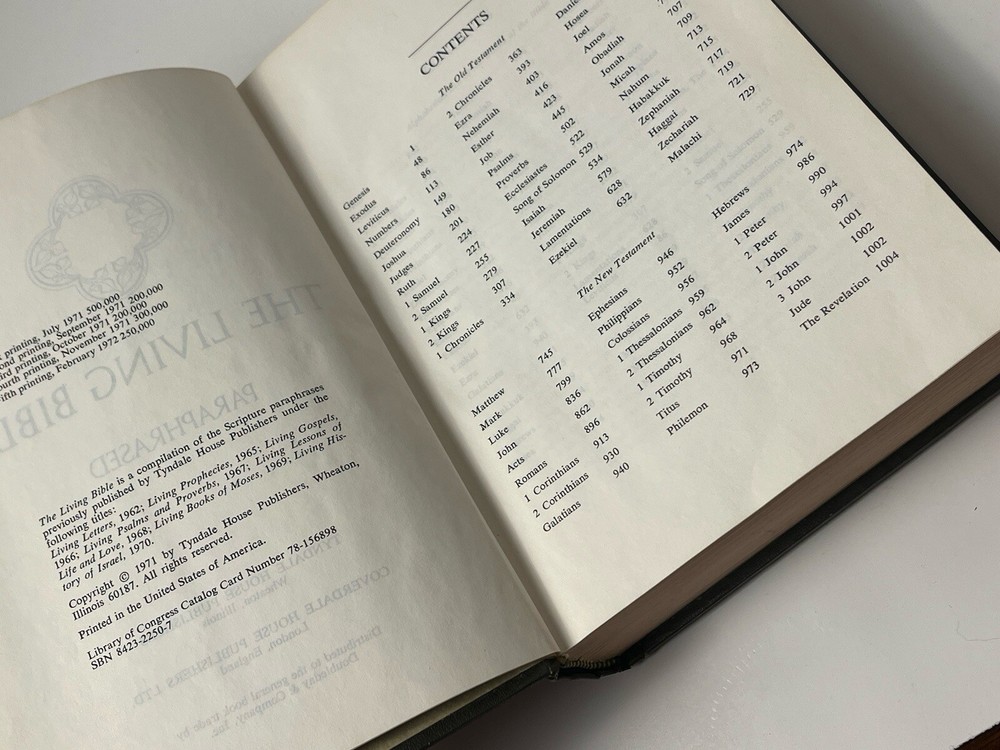 printing, July 1971 500,000
printing, September 1971 200,000
printing, October 1971 200,000
printing, November 1971 300,000
printing, February 1972 250,000
The Living Bible is a compilation of the Scripture paraphrases
previously published by Tyndale House Publishers under the
following titles:
Living Letters, 1962; Living Prophecies, 1965; Living Gospels,
1966; Living Psalms and Proverbs, 1967; Living Lessons of
Life and Love, 1968; Living Books of Moses, 1969; Living His-
tory of Israel, 1970.
Copyright © 1971 by Tyndale House Publishers, Wheaton,
Illinois 60187. All rights reserved.
Printed in the United States of America.
Library of Congress Catalog Card Number 78-156898
SBN 8423-2250-7
CONTENTS
The Old Testament
Genesis 1
Exodus 48
Leviticus 86
Numbers 113
Deuteronomy 149
Joshua 180
Judges 201
Ruth 224
1 Samuel 227
2 Samuel 255
1 Kings 279
2 Kings 307
1 Chronicles 334
2 Chronicles 363
Ezra 393
Nehemiah 403
Esther 416
Job 423
Psalms 445
Proverbs 502
Ecclesiastes 522
Song of Solomon 529
Isaiah 534
Jeremiah 579
Lamentations 628
Ezekiel 632
Hosea
Joel
Amos
Obadiah
Jonah 707
Micah 709
Nahum 713
Habakkuk 715
Zephaniah 717
Haggai 719
Zechariah 721
Malachi 729
The New Testament
Matthew 745
Mark 777
Luke 799
John 836
Acts 862
Romans 896
1 Corinthians 913
2 Corinthians 930
Galatians 940
Ephesians 946
Philippians 952
Colossians 956
1 Thessalonians 959
2 Thessalonians 962
1 Timothy 964
2 Timothy 968
Titus 971
Philemon 973
Hebrews 974
James 986
1 Peter 990
2 Peter 994
1 John 997
2 John 1001
3 John 1002
Jude 1002
The Revelation 1004